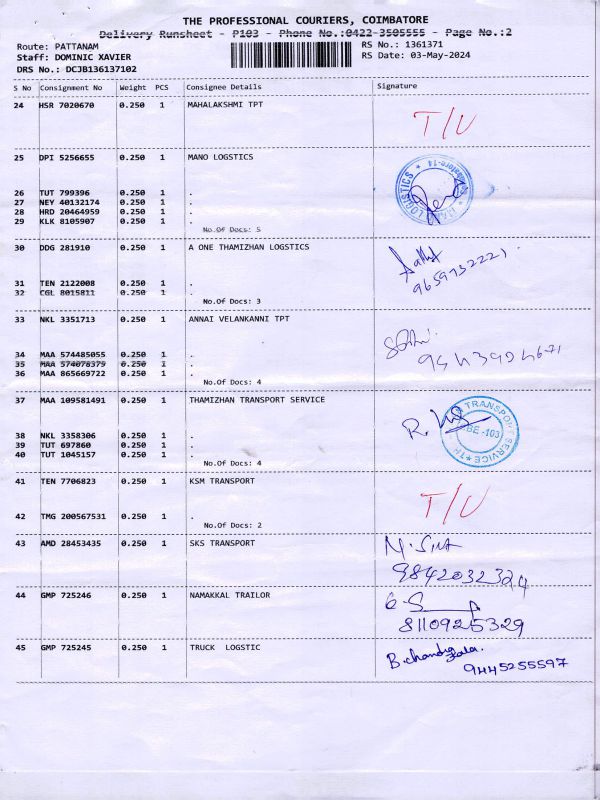 THE PROFESSIONAL COURIERS, COIMBATORE
Delivery Runsheet - P103 - Phone No.:0422-3505555 - Page No.:2
Route: PATTANAM RS No.: 1361371
Staff: DOMINIC XAVIER RS Date: 03-May-2024
DRS No.: DCJB136137102
S No Consignment No Weight PCS Consignee Details Signature
24 HSR 7020670 0.250 1 MAHALAKSHMI TPT
T/U
25 DPI 5256655 0.250 1 MANO LOGSTICS
26 TUT 799396 0.250 1 .
27 NEY 40132174 0.250 1 .
28 HRD 20464959 0.250 1 .
29 KLK 8105907 0.250 1 .
No.Of Docs: 5
30 DDG 281910 0.250 1 A ONE THAMIZHAN LOGSTICS
9659732221
31 TEN 2122008 0.250 1 .
32 CGL 8015811 0.250 1 .
No.Of Docs: 3
33 NKL 3351713 0.250 1 ANNAI VELANKANNI TPT
34 MAA 574485055 0.250 1 .
35 MAA 574078379 0.250 1 .
36 MAA 865669722 0.250 1 .
No.Of Docs: 4
37 MAA 109581491 0.250 1 THAMIZHAN TRANSPORT SERVICE
TRANSPORT SERVICE
BE -103
38 NKL 3358306 0.250 1 .
39 TUT 697860 0.250 1 .
40 TUT 1045157 0.250 1 .
No.Of Docs: 4
41 TEN 7706823 0.250 1 KSM TRANSPORT
T/U
42 TMG 200567531 0.250 1 .
No.Of Docs: 2
43 AMD 28453435 0.250 1 SKS TRANSPORT
9842032324
44 GMP 725246 0.250 1 NAMAKKAL TRAILOR
8110925329
45 GMP 725245 0.250 1 TRUCK LOGSTIC
9445255597